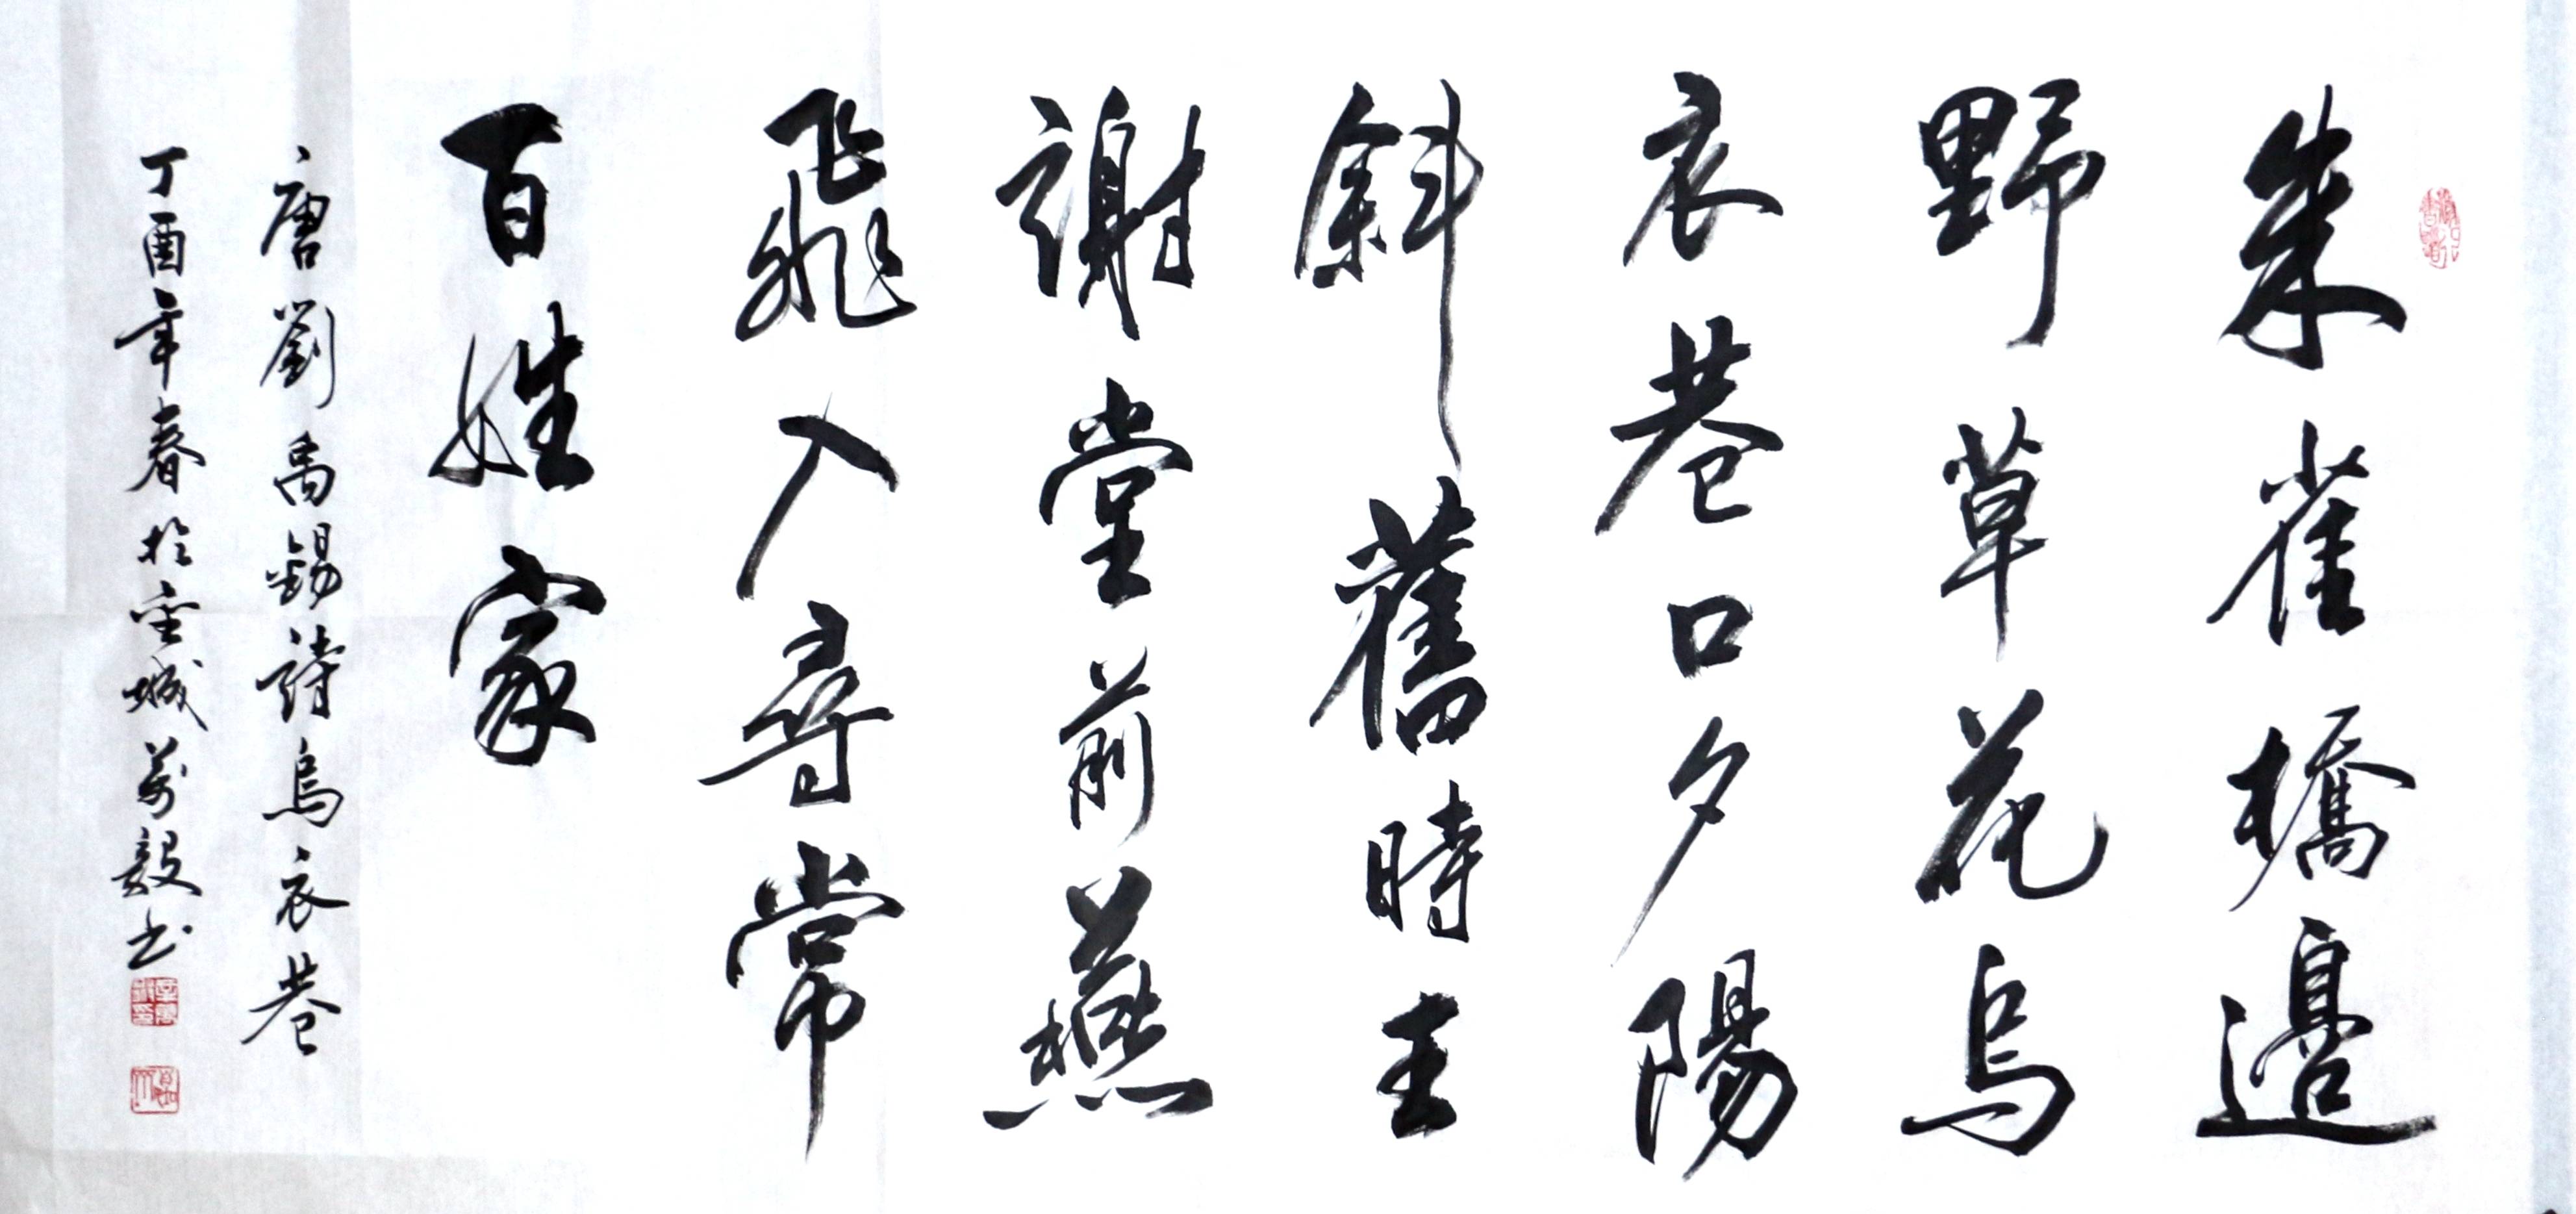 朱雀橋邊
野草花烏
衣巷口夕陽
斜舊時王
謝堂前燕
飛入尋常
百姓家
唐劉禹錫詩烏衣巷
丁酉年春於金城萬毅书